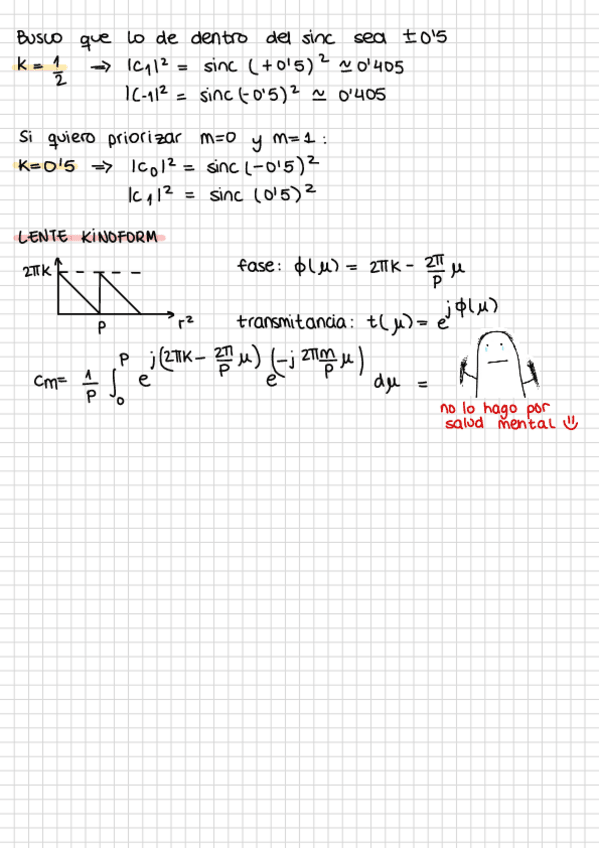 Busco que lo de dentro del sinc sea ±0'5
K = 1/2 → |C₁|² = sinc (+0'5)² ≃ 0'405
|C-1|² = sinc (-0'5)² ≃ 0'405
Si quiero priorizar m=0 y m=1:
K=0'5 => |C₀|² = sinc (-0'5)²
|C₁|² = sinc (0'5)²
LENTE KINOFORM
2πK
P
r²
fase: ϕ(μ) = 2πK - 2π/P μ
transmitancia: t(μ) = e^jϕ(μ)
Cm= 1/P ∫₀^P e^j(2πK - 2π/P μ) e^(-j 2πm/P μ) dμ =
no lo hago por
salud mental